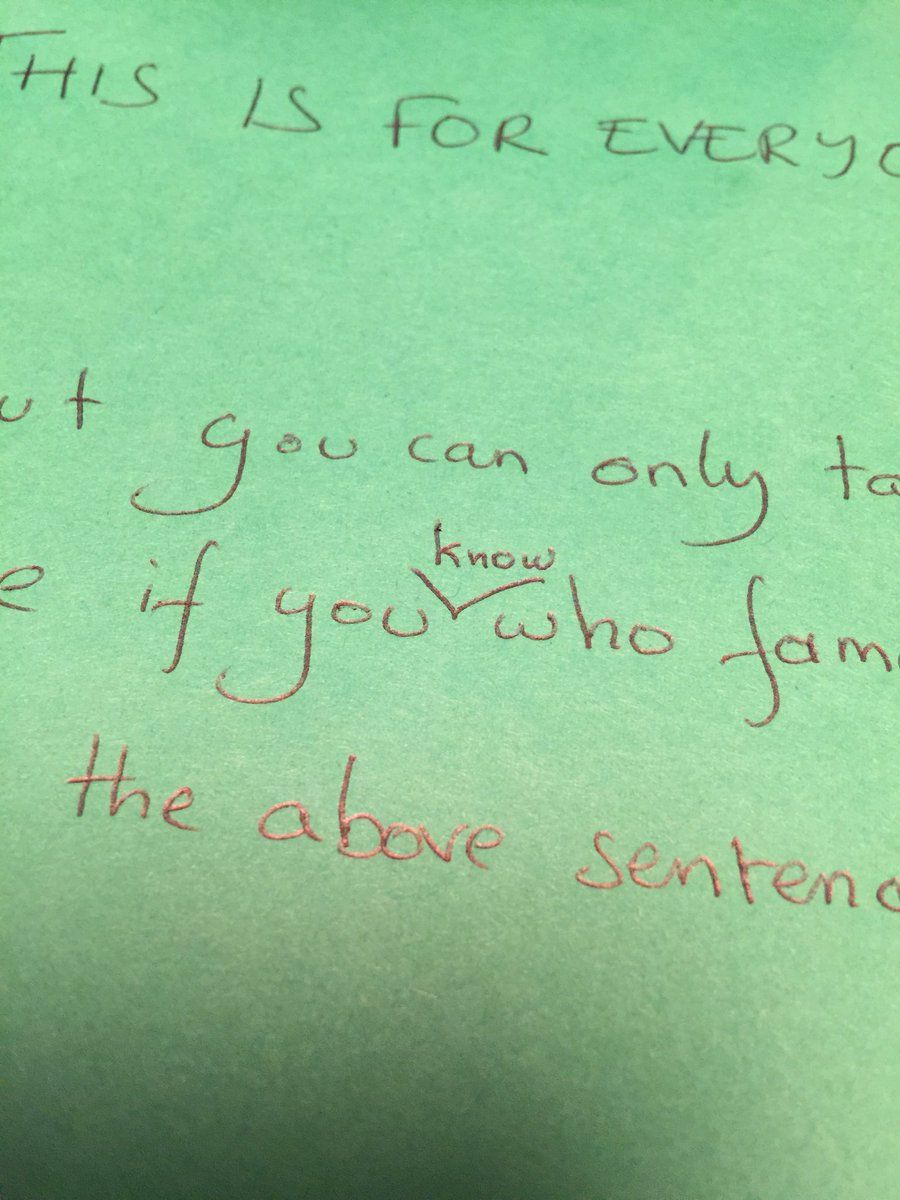 THIS IS FOR EVERYO
ut you can only ta
e if you know who fam
the above sentenc